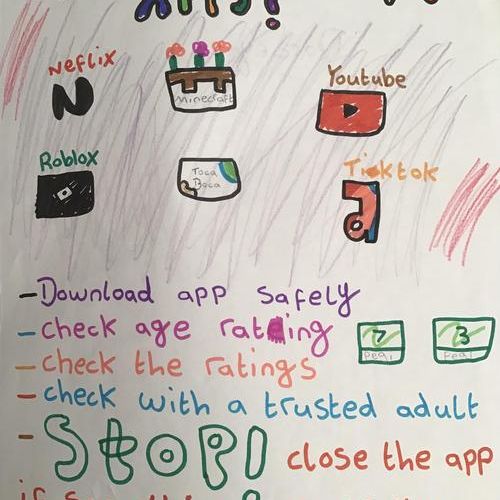 APPS!
Neflix
N
Minecraft
Youtube
Roblox
Toca
Boca
Ticktok
- Download app safely
- check age rating
7
pegi
3
pegi
- check the ratings
- check with a trusted adult
- STOP! close the app
if